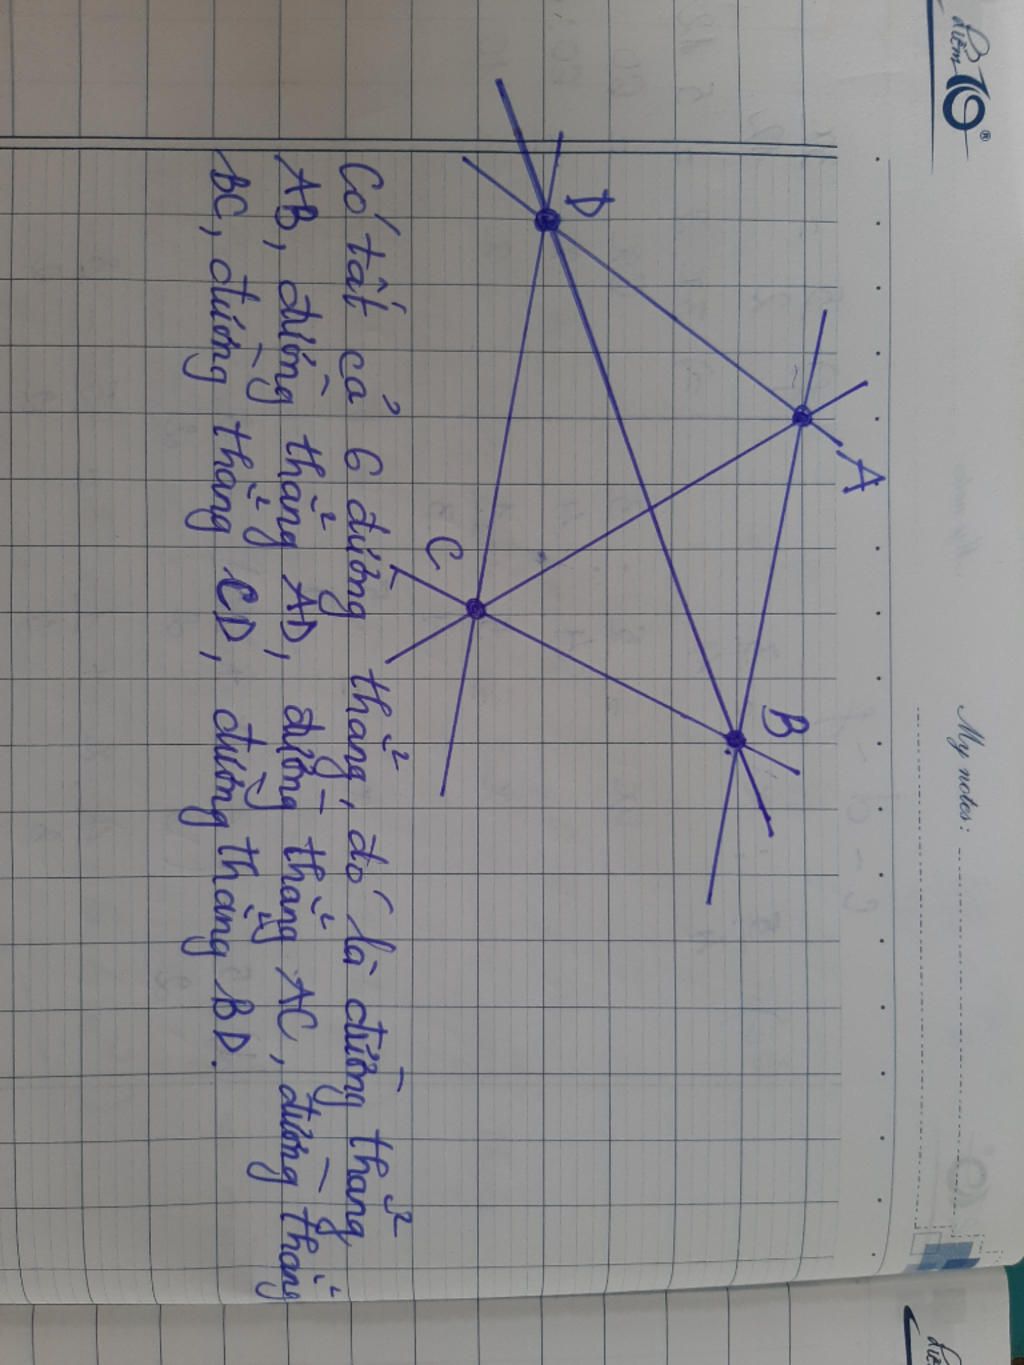 Điểm 10 ®
My notes:
D
A
C
B
Có tất cả 6 đường thẳng, đó là đường thẳng
AB, đường thẳng AD, đường thẳng AC, đường thẳng
BC, đường thẳng CD, đường thẳng BD.